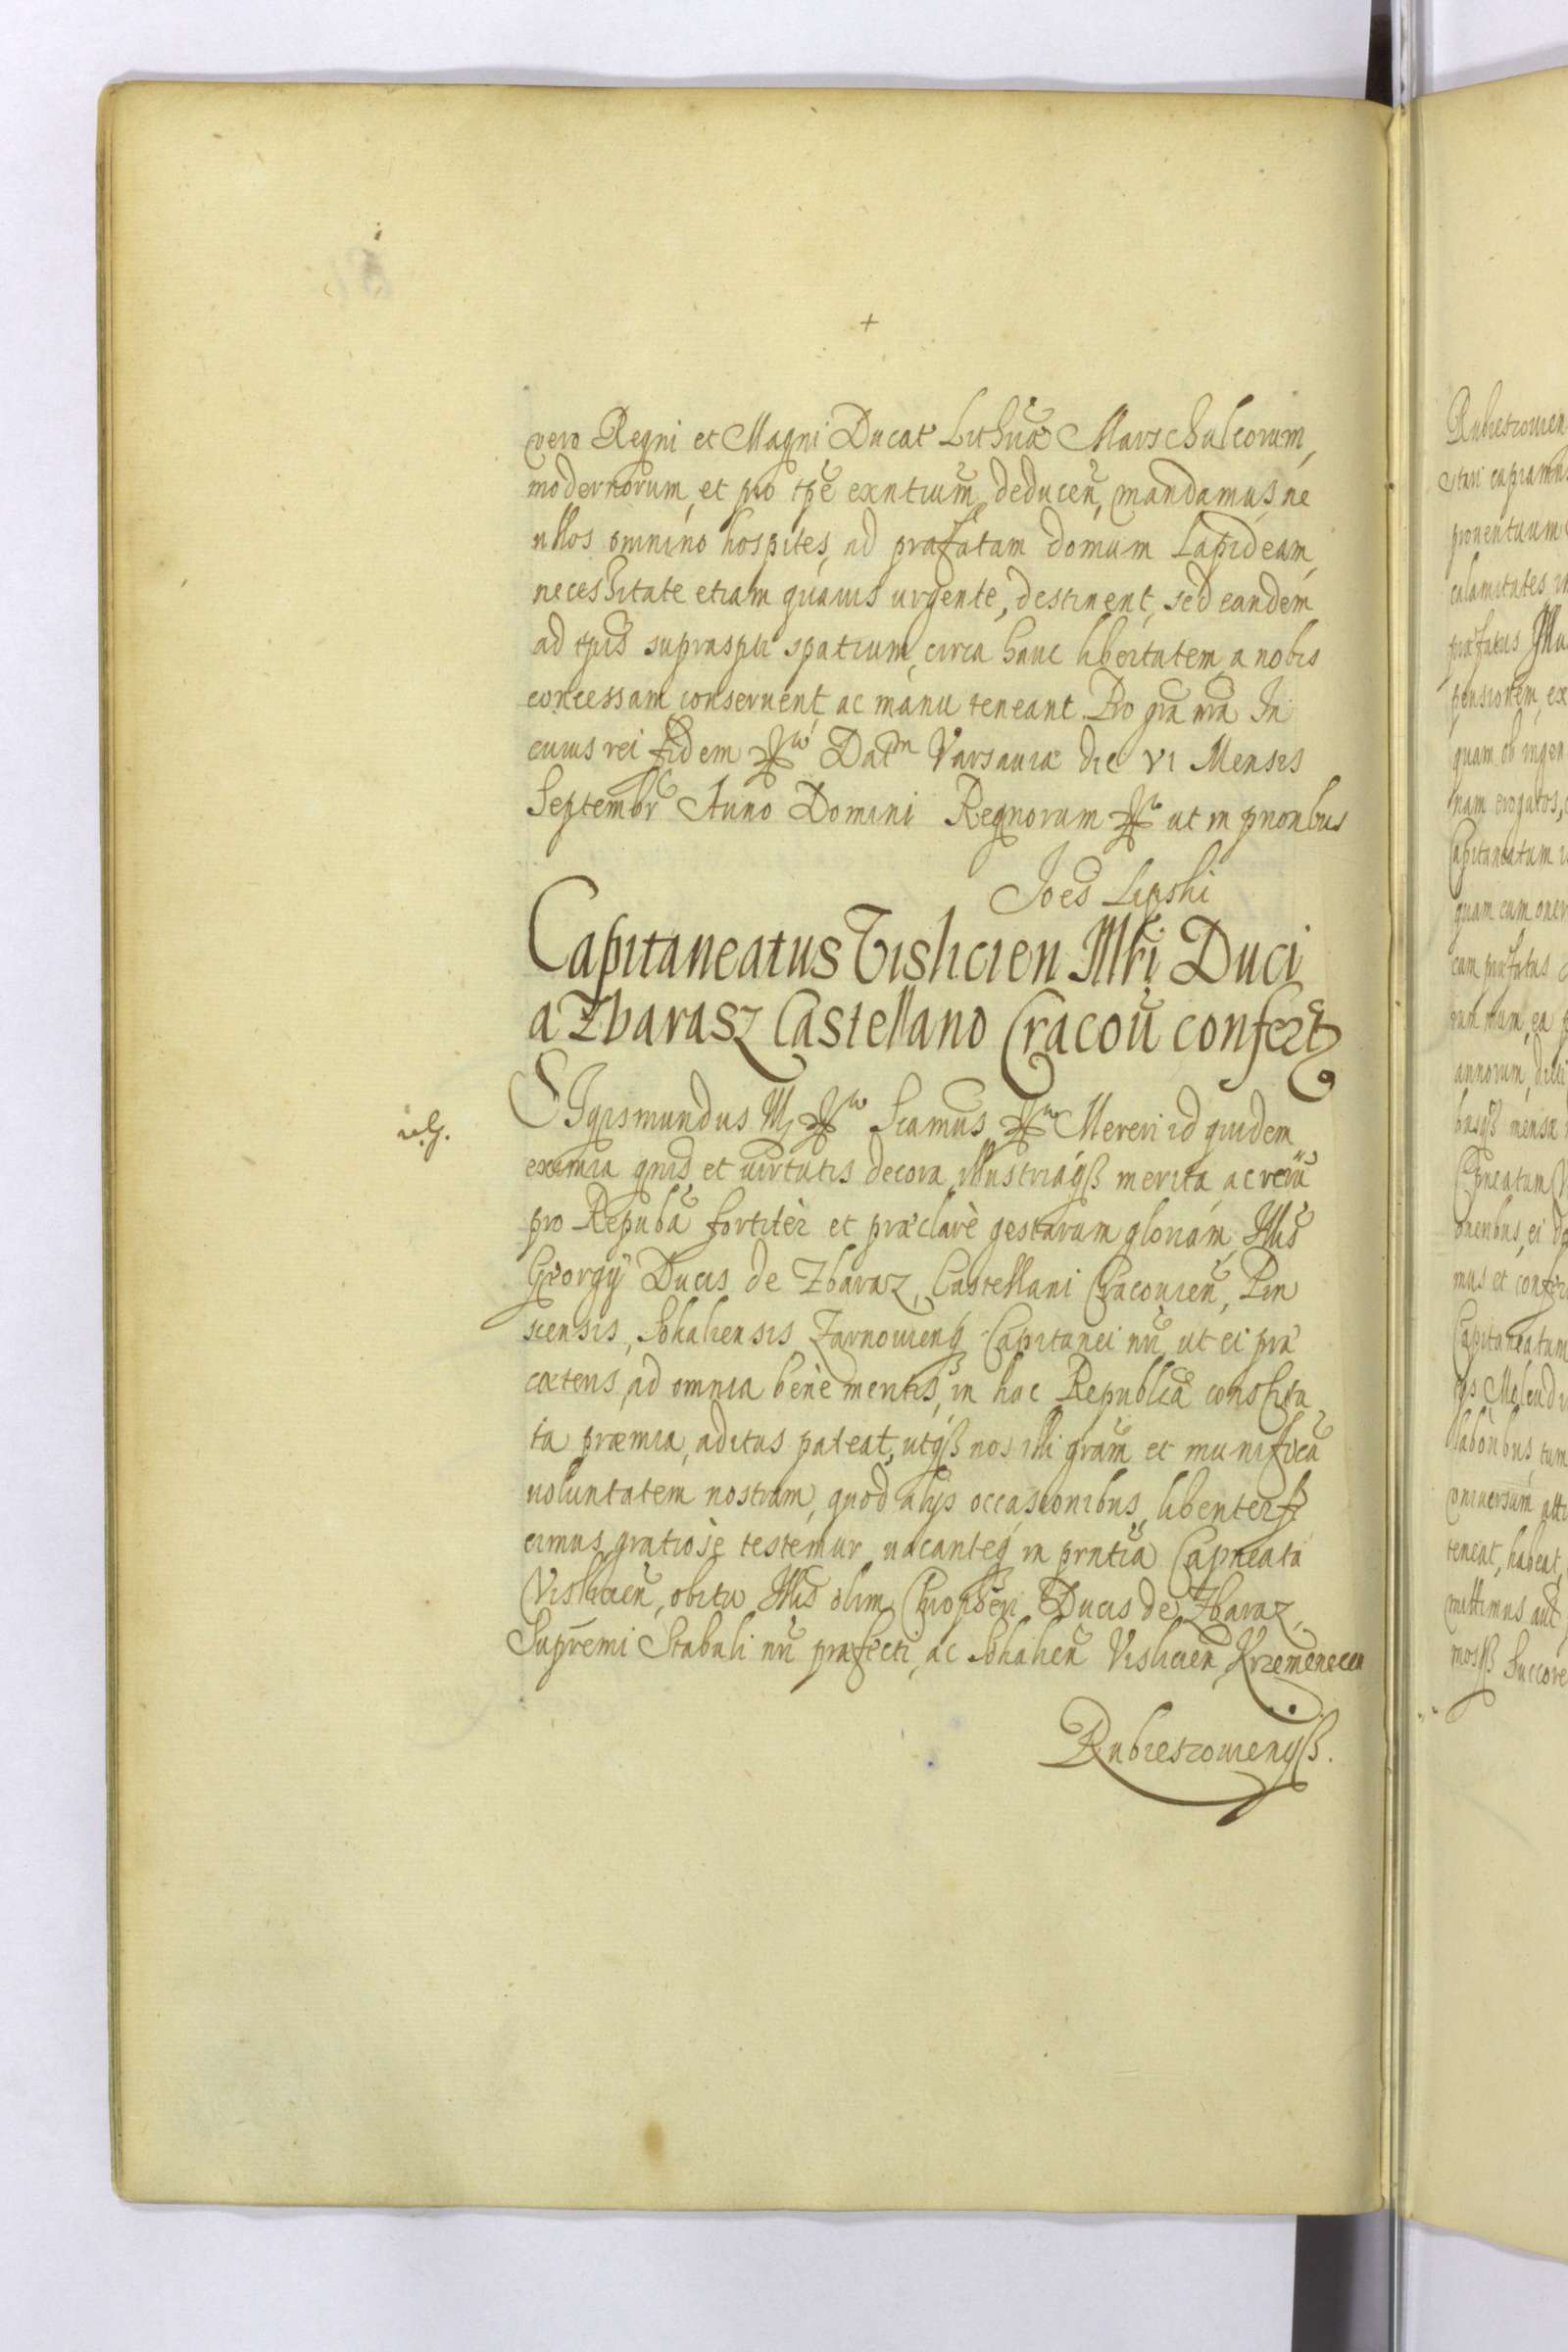 +
vero Regni et Magni Ducat Lithũa Marschalcorum,
modernorum, et pro tpẽ exntium deduceñ, mandamus ne
ullos omnino hospites, ad præfatam domum Lapideam,
necessitate etiam quavis urgente, destinent, sed eandem
ad tpis supraspti spatium, circa hanc libertatem a nobis
concessam conservent, ac manu teneant. Pro gra nra In
cuius rei fidem Datm Varsaviæ die VI Mensis
Septembr Anno Domini Regnorum ut in prioribus
Joes Lipski
Capitaneatus Vislicien Illri Duci
a Zbarasz Castellano Cracoũ confert
Sigismundus III Scamus Mereri id quidem
eximia gnis et virtutis decora, illustriaqß merita ac rerũ
pro Repubã fortitèr et præclarè gestarum gloriam, Illis
Georgÿ Ducis de Zbaraz, Castellani Cracovieñ, Pin
scensis, Sokaliensis Zarnovienqß Capitanei nri, ut ei præ
cæteris, ad omnia bene meritis, in hac Republica constitu
ta præmia, aditus pateat, utqß nos illi gram et munificã
voluntatem nostram, quod alijs occasionibus, libenter fe
cimus, gratiosè testemur, vacanteqß in prntia Capneatu
Vislicieñ, obitu Illis olim Chrophori Ducis de Zbaraz,
Supremi Stabuli nri præfecti, ac Sokalieñ Vislicieñ Krzemenecen
Rubieszovienqß.
Rubieszovien
proventuum
calamitates in
præfatus Illu
pensionem, ex
quam ob ingen
nam erogatos,
Capitaneatum
quam cum oner
cum præfatus
annorum,
Capneatum
oneribus, ei
mus et confer
Capitaneatum
laboribus, tum
teneat, habeat,
mittimus aut
mosqß Succore